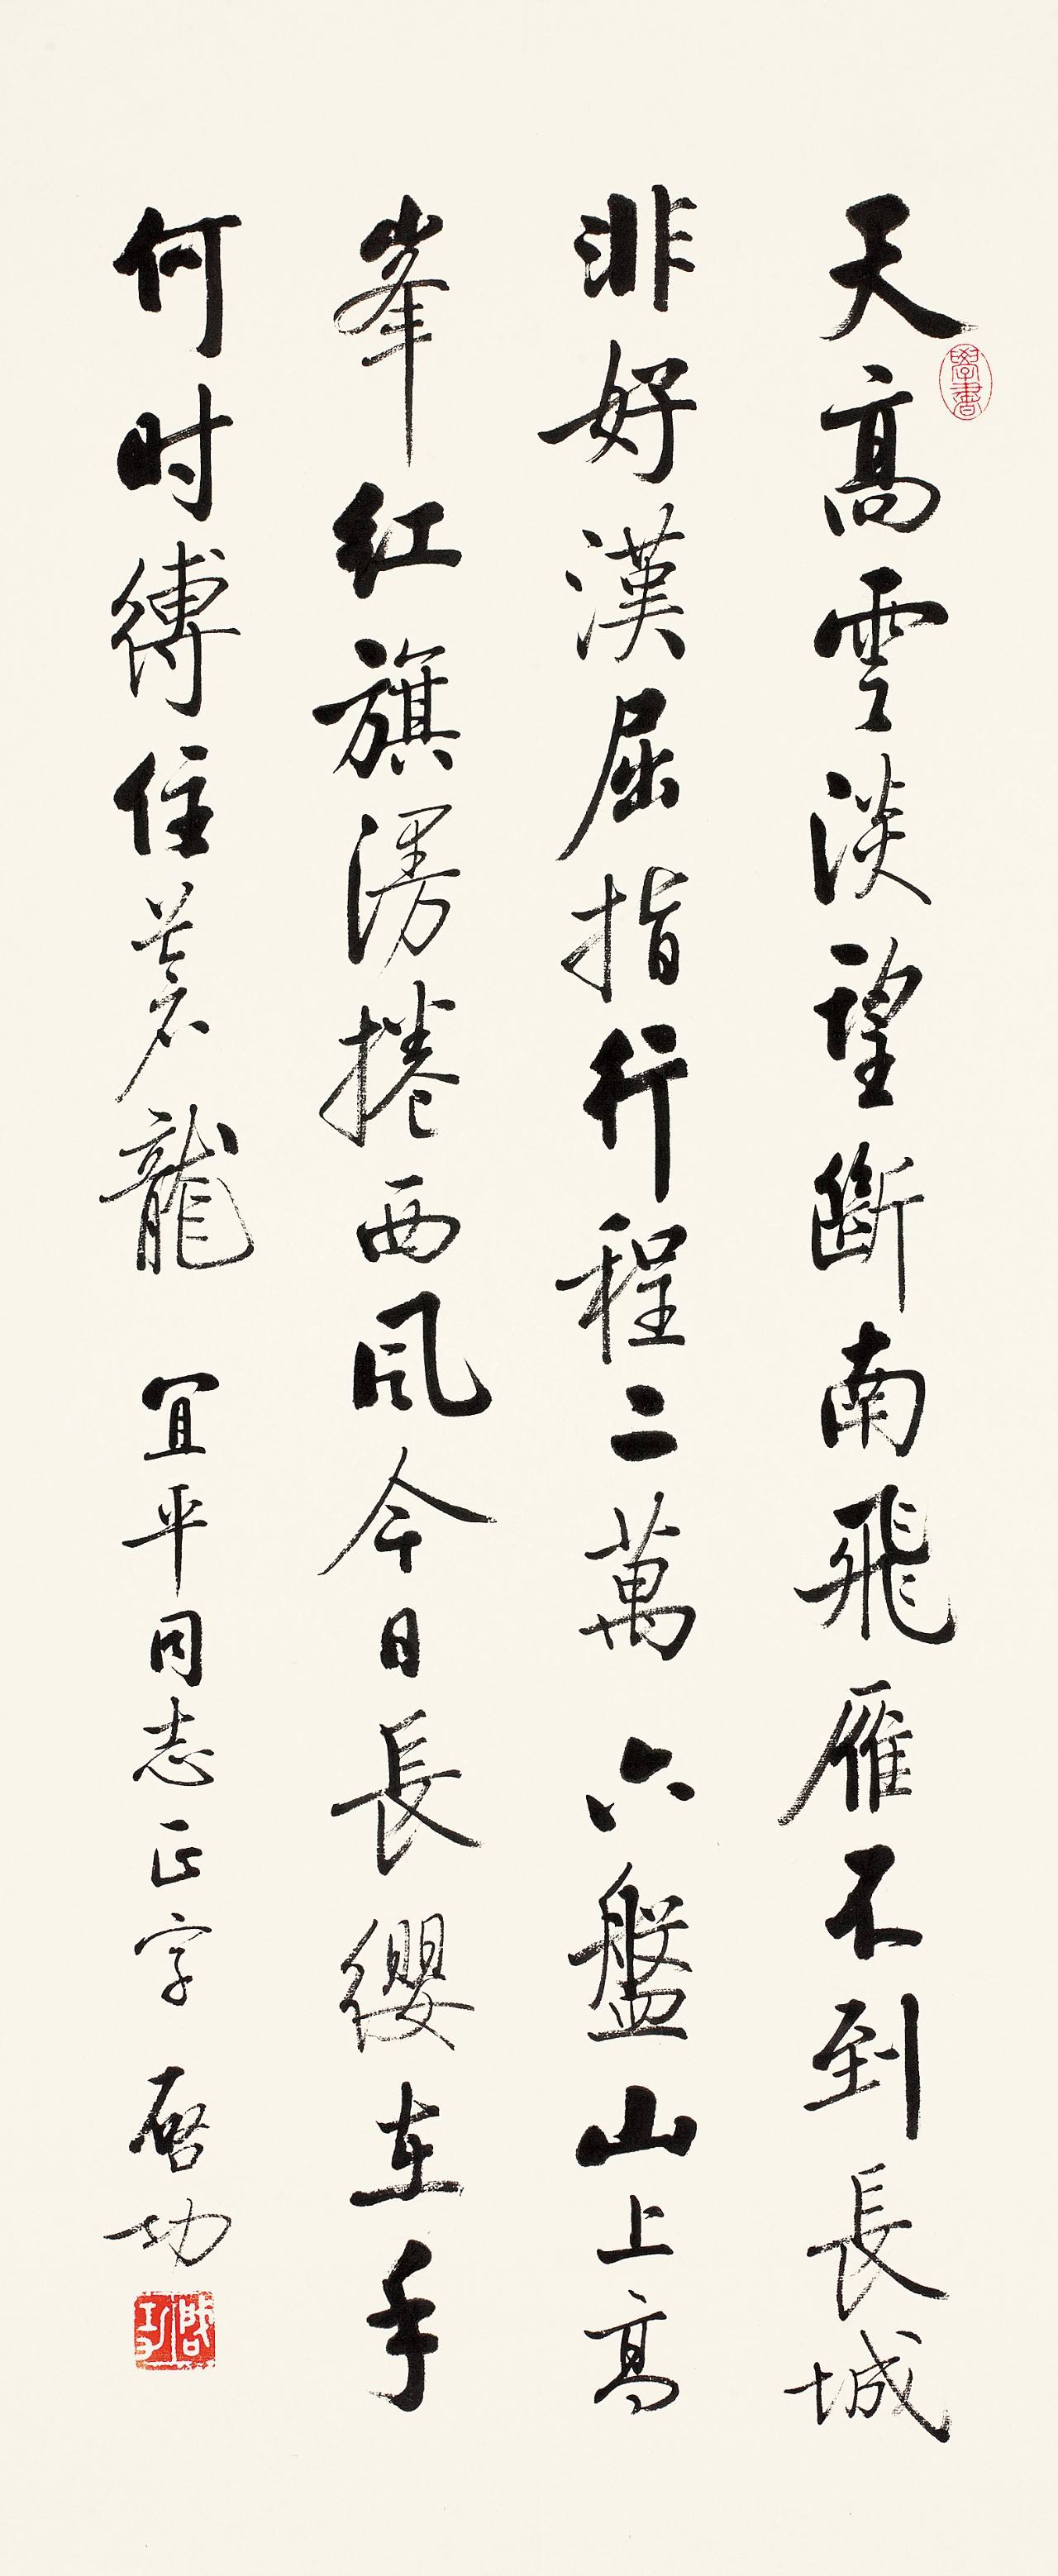 天高雲淡望斷南飛雁不到長城
非好漢屈指行程二萬六盤山上高
峯红旗漫捲西风今日長纓在手
何时縛住苍龍 宜平同志正字 启功
學書
啟功